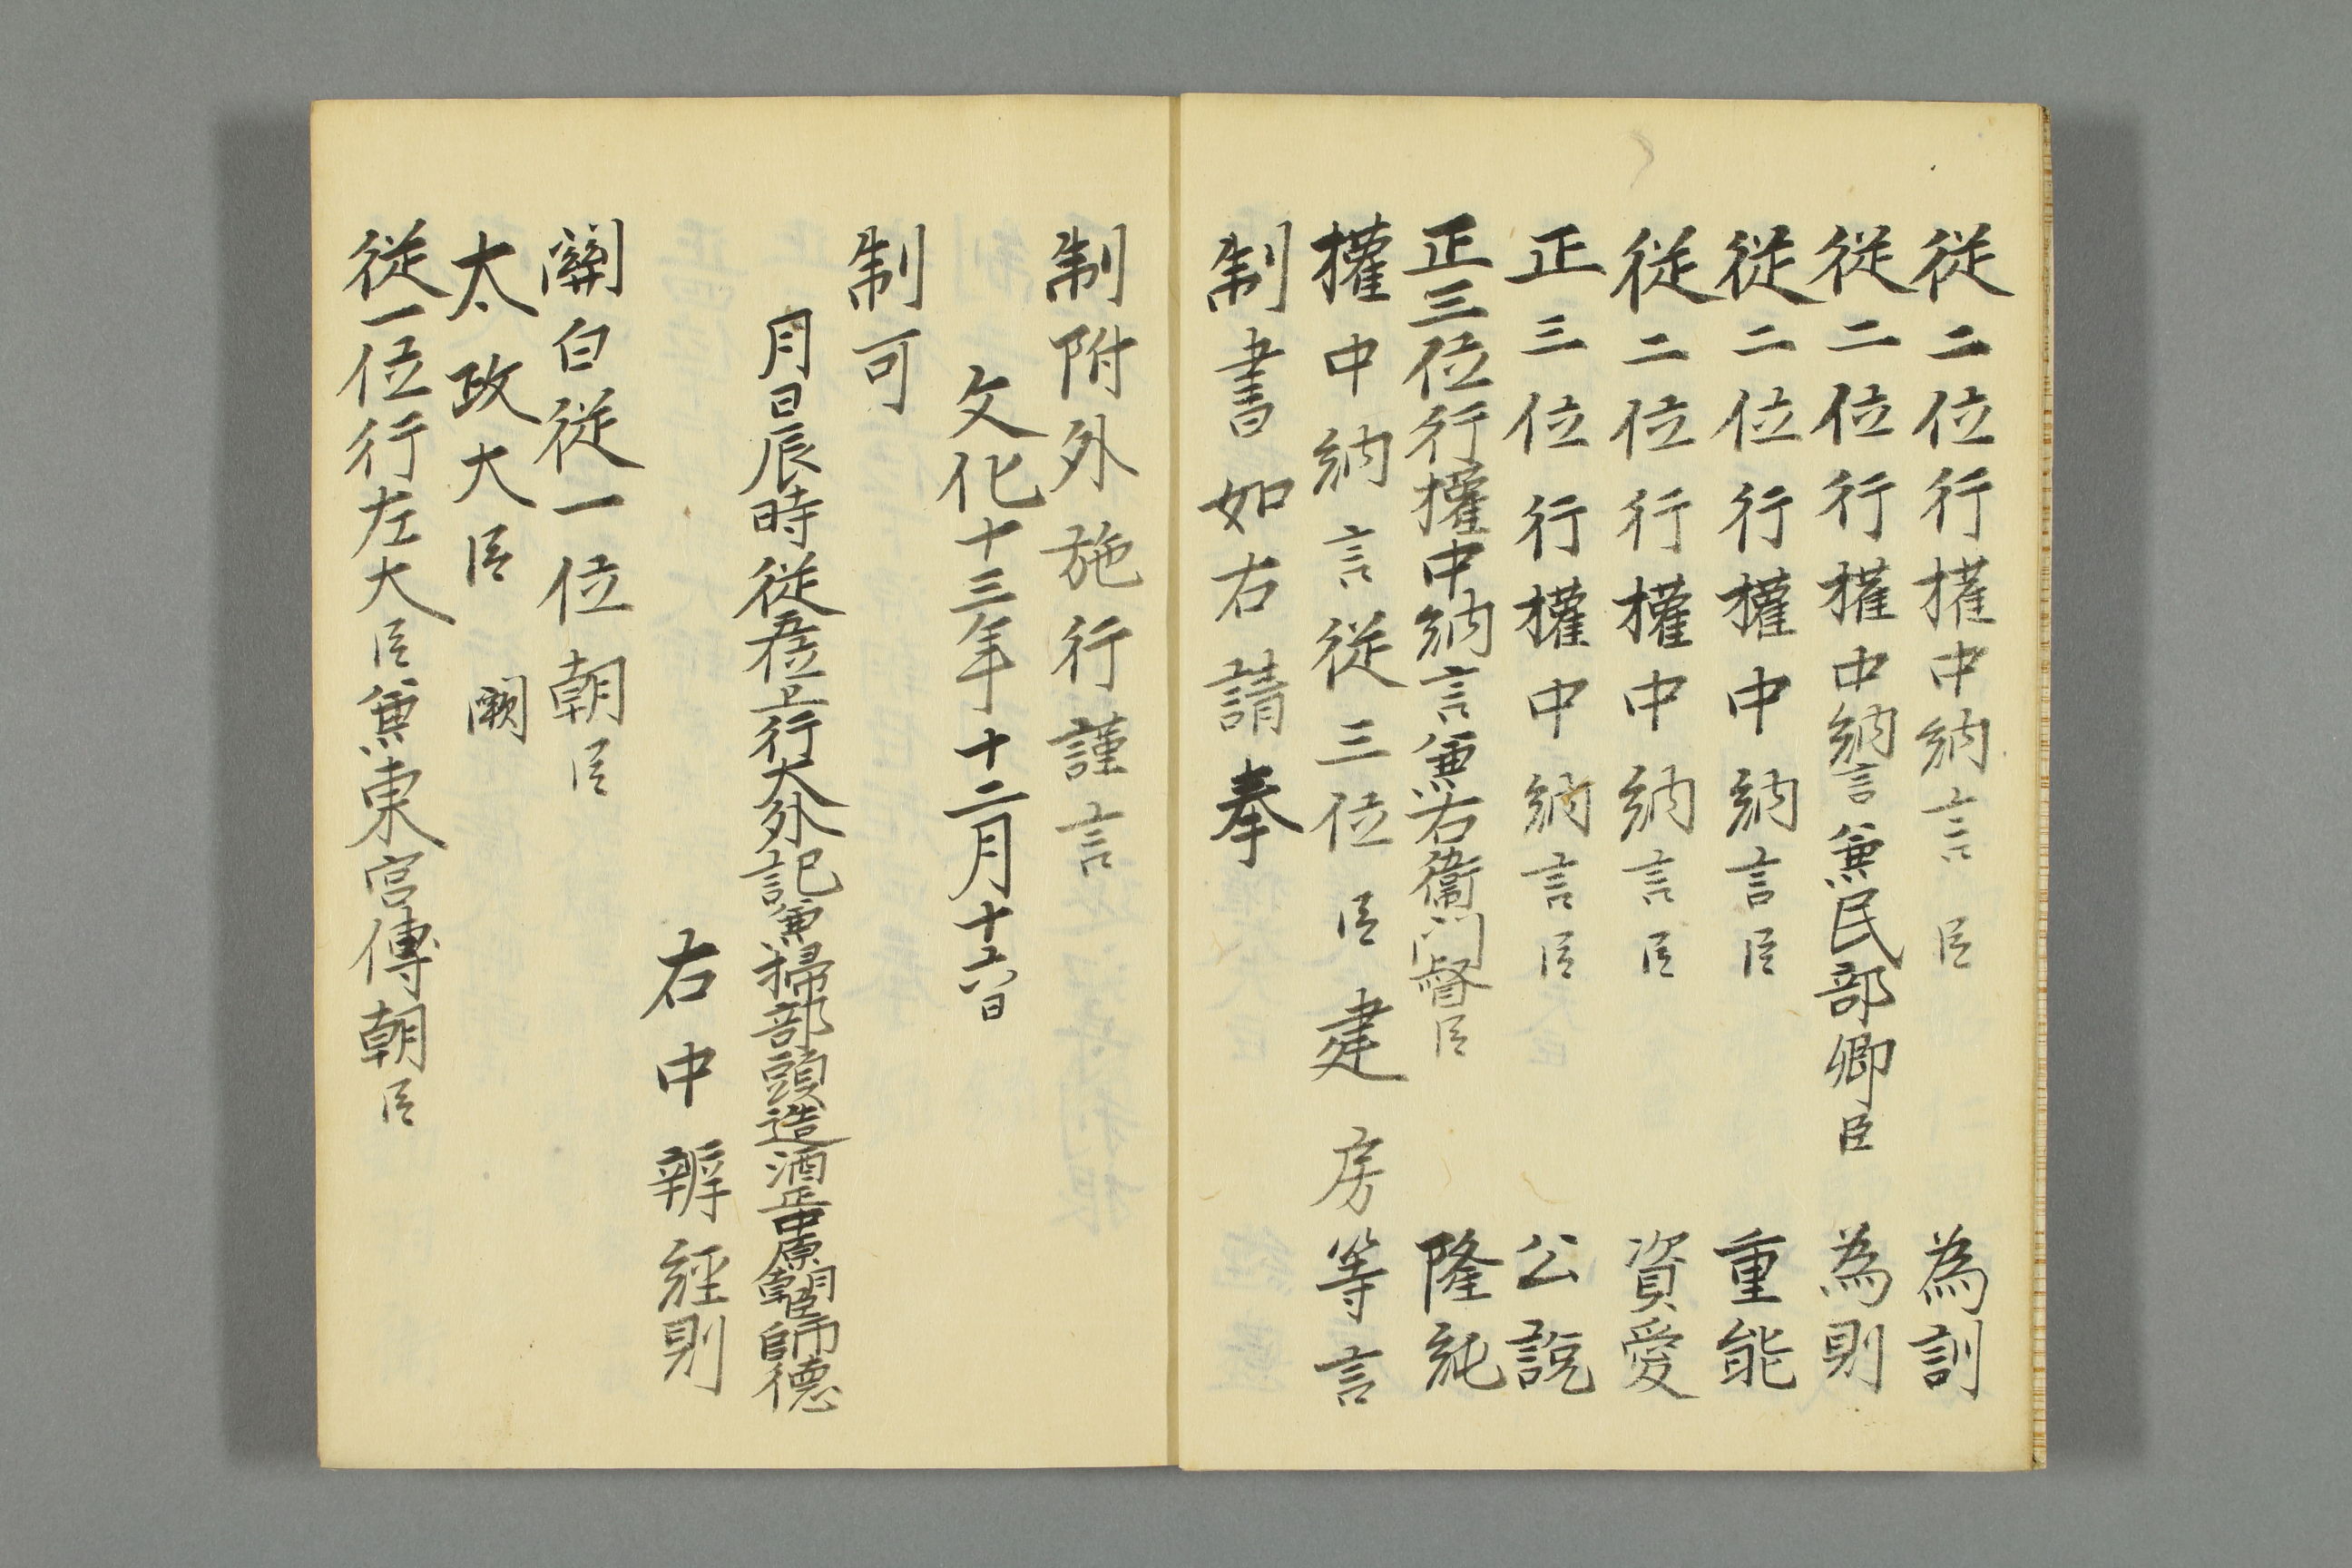 従二位行權中納言臣 為訓
従二位行權中納言兼民部卿臣 為則
従二位行權中納言臣 重能
従二位行權中納言臣 資愛
正三位行權中納言臣 公説
正三位行權中納言兼右衞門督臣 隆純
權中納言従三位臣建房等言
制書如右請奉
制附外施行謹言
文化十三年十二月十六日
制可
月日辰時従五位上行大外記兼掃部頭造酒正中原朝臣師德
右中辨經則
關白従一位朝臣
太政大臣 闕
従一位行左大臣兼東宮傳朝臣